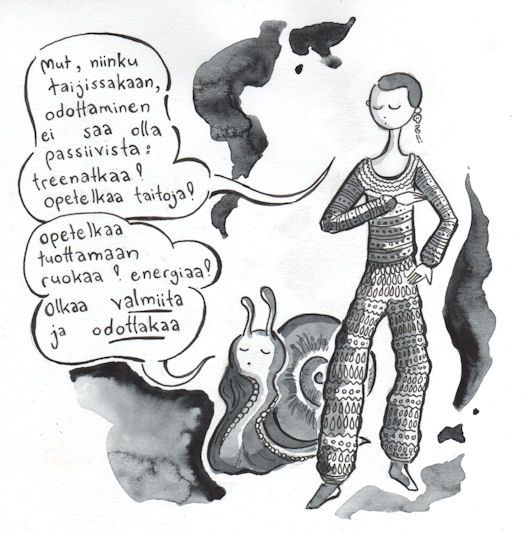 Mut, niinku
taijissakaan,
odottaminen
ei saa olla
passiivista:
treenatkaa!
opetelkaa taitoja!
opetelkaa
tuottamaan
ruokaa! energiaa!
Olkaa valmiita
ja odottakaa